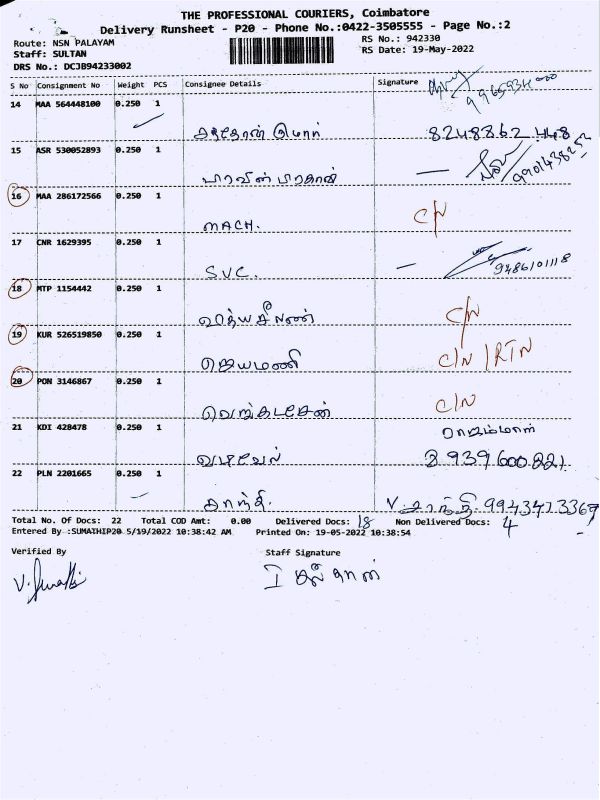 THE PROFESSIONAL COURIERS, Coimbatore
Delivery Runsheet - P20 - Phone No.:0422-3505555 - Page No.:2
Route: NSN PALAYAM
RS No.: 942330
Staff: SULTAN
RS Date: 19-May-2022
DRS No.: DCJB94233002
S No Consignment No Weight PCS Consignee Details Signature
14 MAA 564448100 0.250 1
8248862 448
15 ASR 530052893 0.250 1
16 MAA 286172566 0.250 1 C/N
MACH.
17 CNR 1629395 0.250 1
SVC. — 9486101118
18 MTP 1154442 0.250 1
C/N
19 KUR 526519850 0.250 1 C/N / RTN
ஜெயமணி
20 PON 3146867 0.250 1 C/N
21 KDI 428478 0.250 1 ராஜம்மாள்
வடிவேல்
22 PLN 2201665 0.250 1
சாந்தி. V. சாந்தி.
Total No. Of Docs: 22 Total COD Amt: 0.00 Delivered Docs: 18 Non Delivered Docs: 4
Entered By :SUMATHIP20 5/19/2022 10:38:42 AM Printed On: 19-05-2022 10:38:54
Verified By Staff Signature